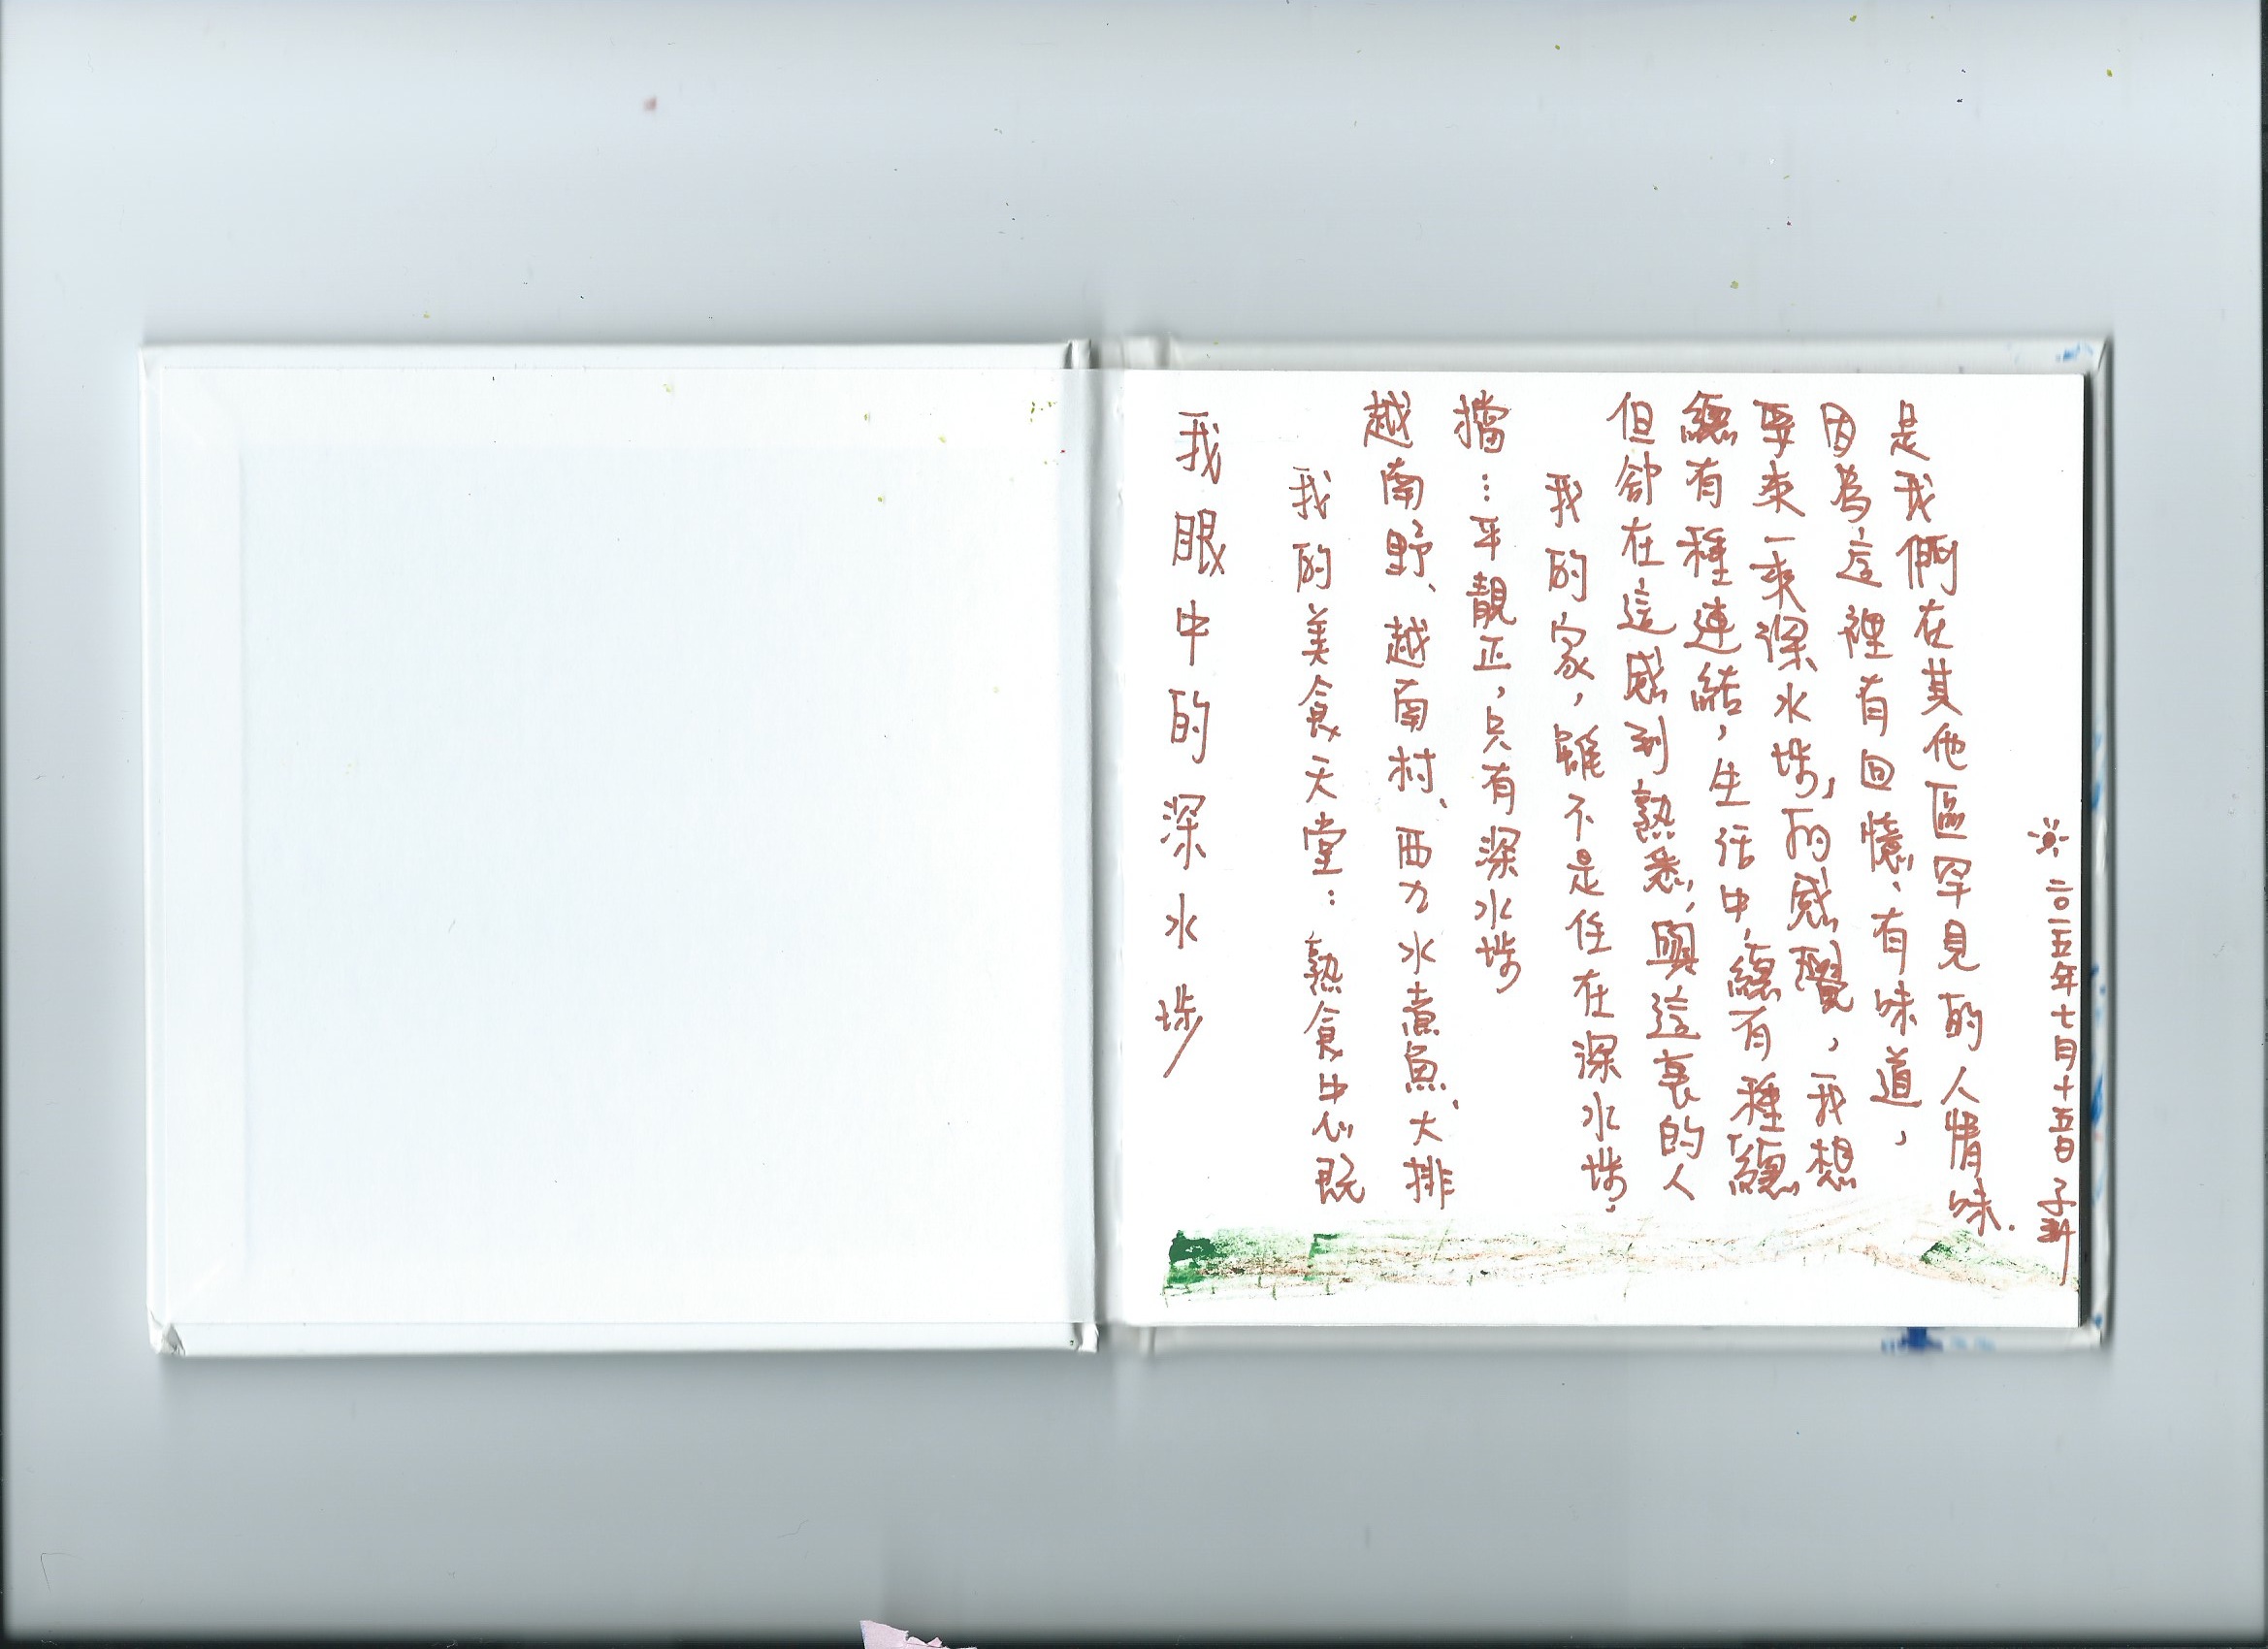 我眼中的深水埗
我的美食天堂：熟食中心既
越南野、越南村、西九水煮魚、大排
擋…平靚正，只有深水埗
我的家，雖不是住在深水埗，
但卻在這感到熟悉，與這裏的人
總有種連結，生活中，總有種總
要來一來深水埗，的感覺，我想
因為這裡有回憶、有味道，
是我們在其他區罕見的人情味．
二〇一五年七月十五日 子新